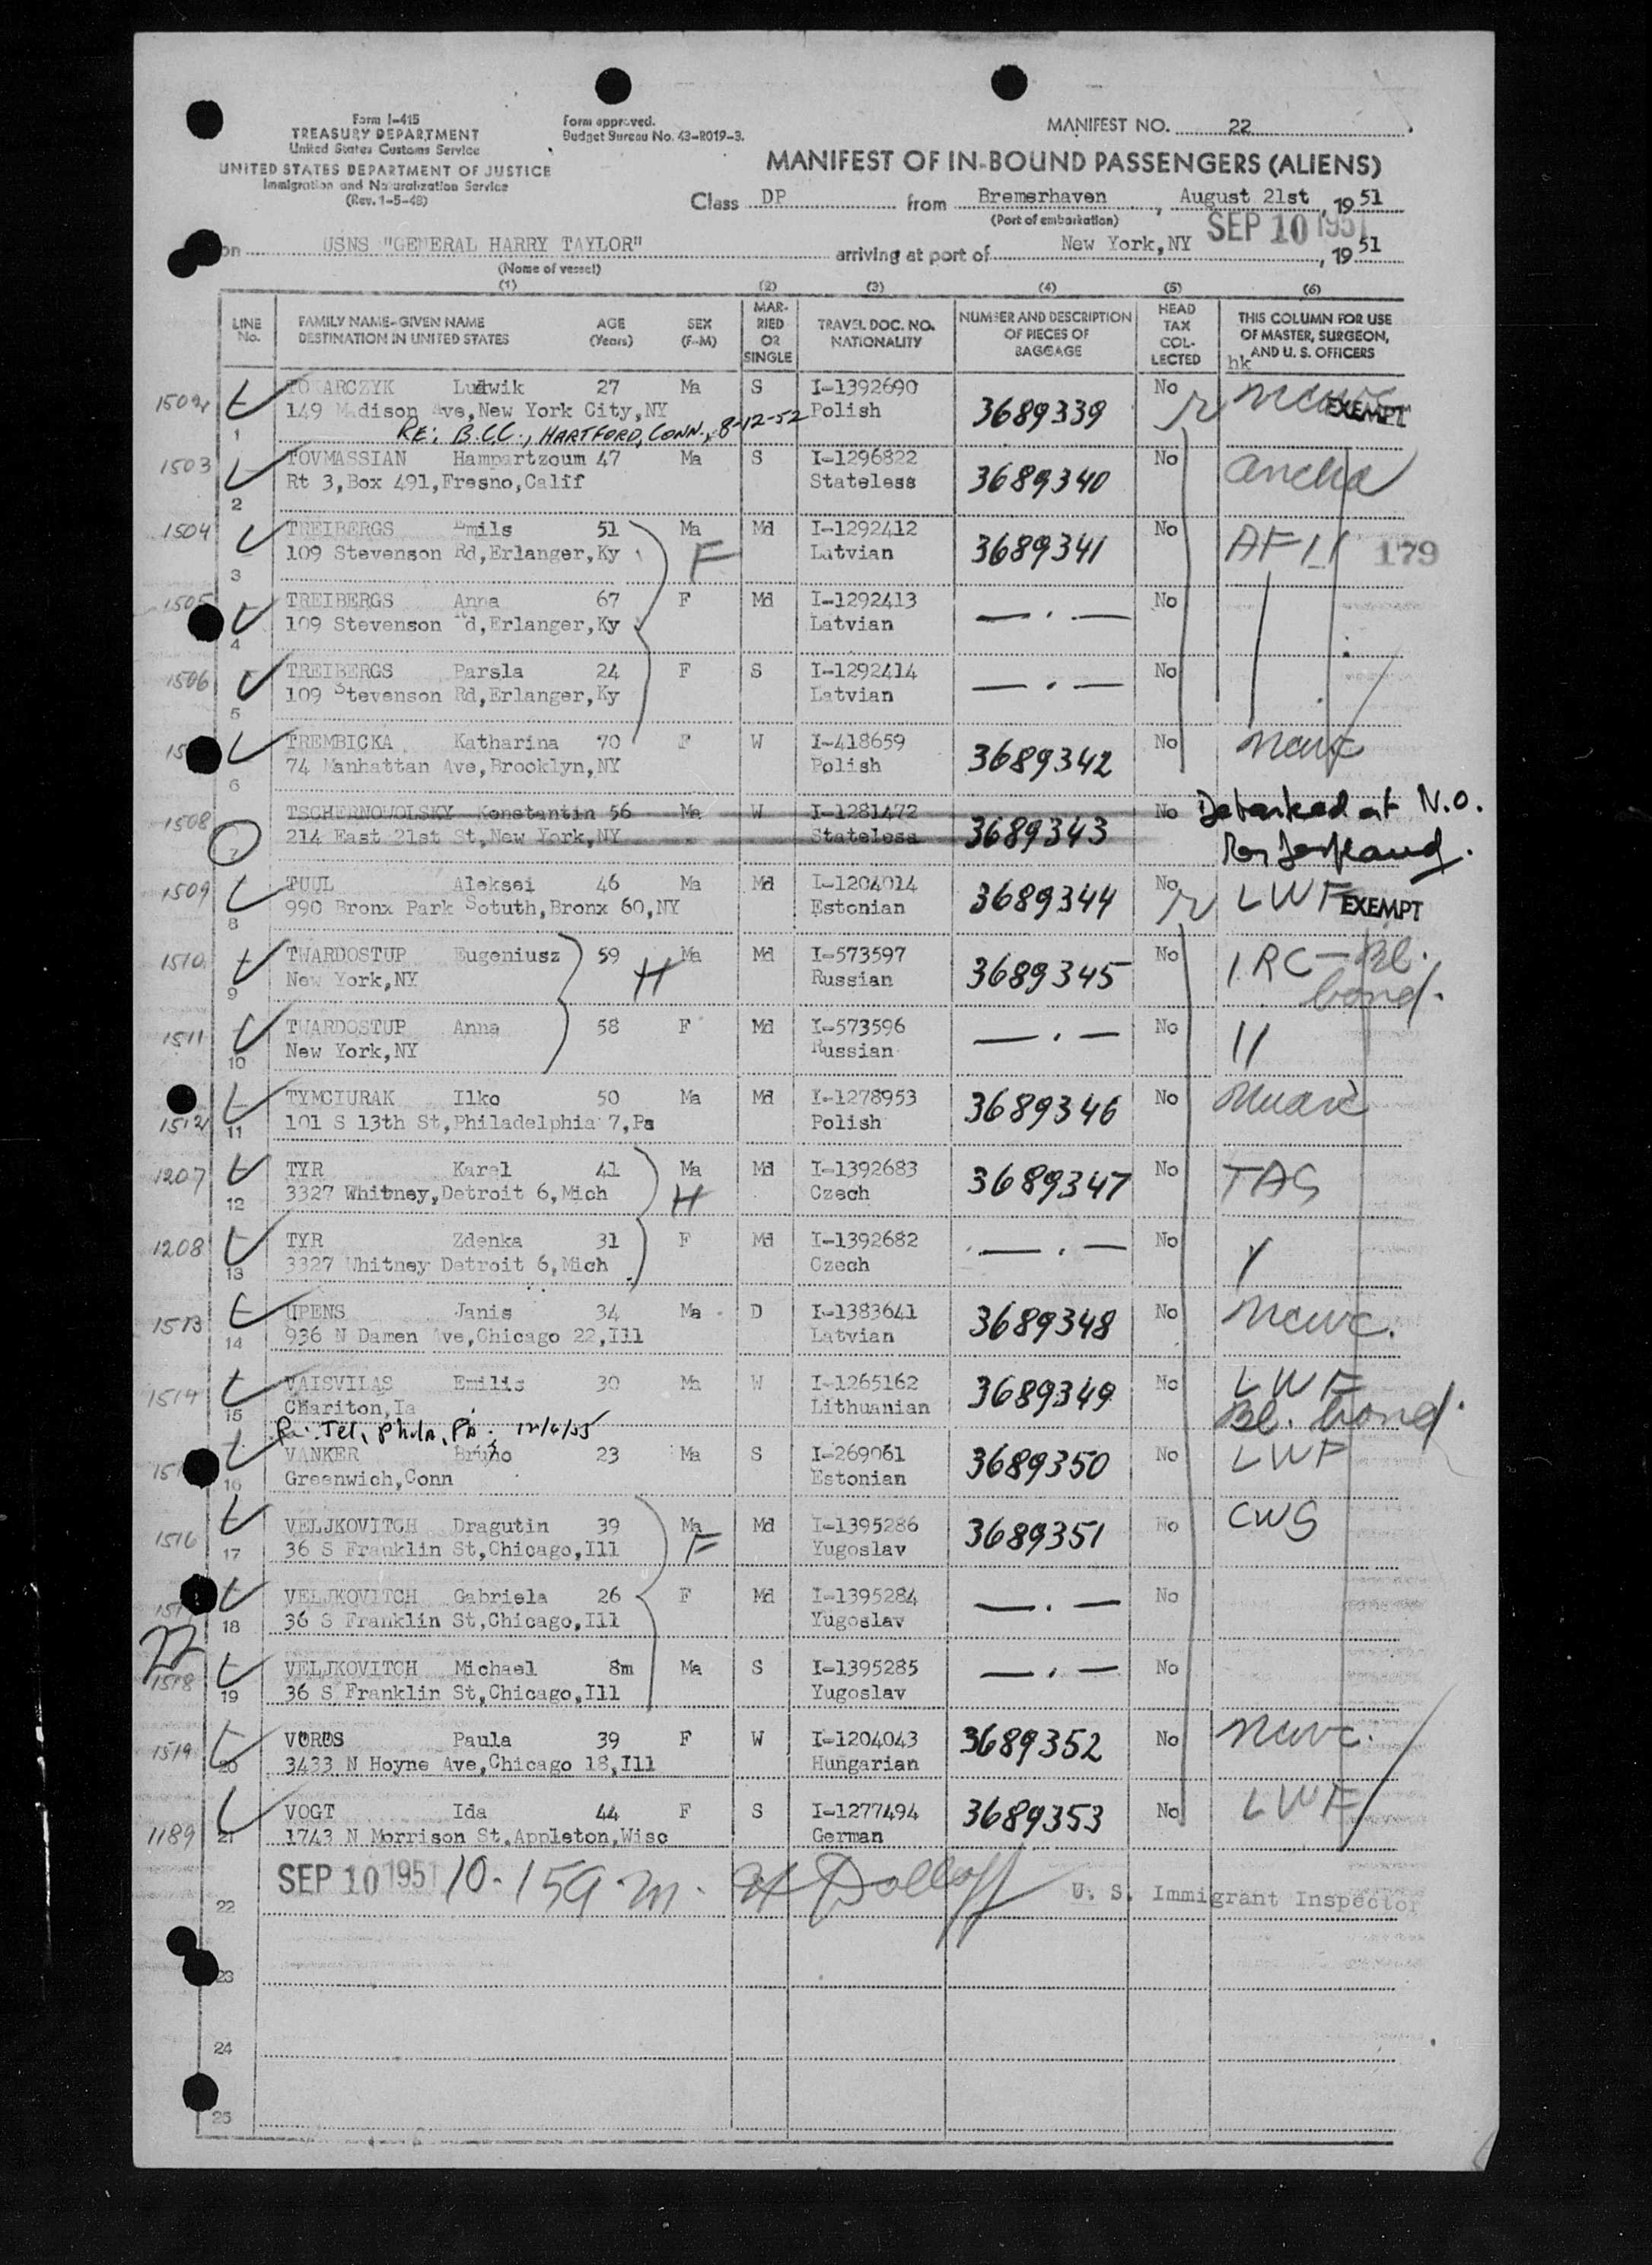 Form I-415
TREASURY DEPARTMENT
United States Customs Service
UNITED STATES DEPARTMENT OF JUSTICE
Immigration and Naturalization Service
(Rev. 1-5-48)
Form approved.
Budget Bureau No. 43-R019-3.
MANIFEST NO. 22
MANIFEST OF IN-BOUND PASSENGERS (ALIENS)
Class DP from Bremerhaven, August 21st, 1951
(Port of embarkation)
SEP 10 1951
on USNS "GENERAL HARRY TAYLOR" arriving at port of New York, NY, 1951
(Name of vessel)
(1) (2) (3) (4) (5) (6)
LINE No. FAMILY NAME-GIVEN NAME DESTINATION IN UNITED STATES AGE (Years) SEX (F-M) MARRIED OR SINGLE TRAVEL DOC. NO. NATIONALITY NUMBER AND DESCRIPTION OF PIECES OF BAGGAGE HEAD TAX COLLECTED THIS COLUMN FOR USE OF MASTER, SURGEON, AND U. S. OFFICERS
hk
1502 TOKARCZYK Ludwik 27 Ma S I-1392690 3689339 No EXEMPT
1 149 Madison Ave, New York City, NY Polish
RE: B.C.C., HARTFORD, CONN., 8-12-52
1503 TOVMASSIAN Hampartzoum 47 Ma S I-1296822 3689340 No
2 Rt 3, Box 491, Fresno, Calif Stateless
1504 TREIBERGS Emils 51 Ma Md I-1292412 3689341 No 179
3 109 Stevenson Rd, Erlanger, Ky F Latvian
1505 TREIBERGS Anna 67 F Md I-1292413 — . — No
4 109 Stevenson Rd, Erlanger, Ky Latvian
1506 TREIBERGS Parsla 24 F S I-1292414 — . — No
5 109 Stevenson Rd, Erlanger, Ky Latvian
TREMBICKA Katharina 70 F W I-418659 3689342 No
6 74 Manhattan Ave, Brooklyn, NY Polish
1508 TSCHERNOWOLSKY Konstantin 56 Ma W I-1281472 3689343 No Debarked at N.O.
7 214 East 21st St, New York, NY Stateless
1509 TUUL Aleksei 46 Ma Md I-1204014 3689344 No LWF EXEMPT
8 990 Bronx Park Sotuth, Bronx 60, NY Estonian
1510 TWARDOSTUP Eugeniusz 59 Ma Md I-573597 3689345 No IRC - Bl. bond.
9 New York, NY H Russian
1511 TWARDOSTUP Anna 58 F Md I-573596 — . — No "
10 New York, NY Russian
1512 TYMCIURAK Ilko 50 Ma Md I-1278953 3689346 No
11 101 S 13th St, Philadelphia 7, Pa Polish
1207 TYR Karel 41 Ma Md I-1392683 3689347 No
12 3327 Whitney, Detroit 6, Mich H Czech
1208 TYR Zdenka 31 F Md I-1392682 — . — No
13 3327 Whitney Detroit 6, Mich Czech
1513 UPENS Janis 34 Ma D I-1383641 3689348 No
14 936 N Damen Ave, Chicago 22, Ill Latvian
1514 VAISVILAS Emilis 30 Ma W I-1265162 3689349 No LWF Bl. bond.
15 Chariton, Ia Lithuanian
Phila, Pa.
VANKER Bruno 23 Ma S I-269061 3689350 No LWF
16 Greenwich, Conn Estonian
1516 VELJKOVITCH Dragutin 39 Ma Md I-1395286 3689351 No CWS
17 36 S Franklin St, Chicago, Ill F Yugoslav
VELJKOVITCH Gabriela 26 F Md I-1395284 — . — No
18 36 S Franklin St, Chicago, Ill Yugoslav
22
1518 VELJKOVITCH Michael 8m Ma S I-1395285 — . — No
19 36 S Franklin St, Chicago, Ill Yugoslav
1519 VOROS Paula 39 F W I-1204043 3689352 No
20 3433 N Hoyne Ave, Chicago 18, Ill Hungarian
1189 VOGT Ida 44 F S I-1277494 3689353 No LWF
21 1743 N Morrison St, Appleton, Wisc German
SEP 10 1951 10-15 a.m. U. S. Immigrant Inspector
22
23
24
25